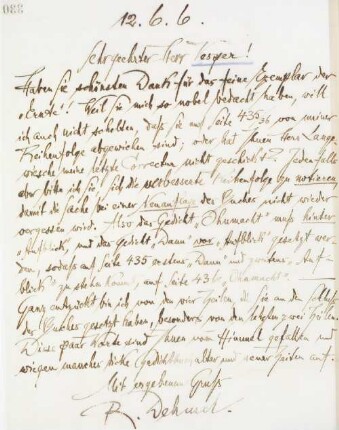 088
12.6.6.
Sehr geehrter Herr Vesper!
Haben Sie schönsten Dank für das feine Exemplar der
„Ernte“! Weil Sie mich so nobel bedacht haben, will
ich auch nicht schelten, daß Sie auf Seite 435/36 von meiner
Reihenfolge abgewichen sind; oder hat Ihnen Herr Lange-
wiesche meine letzte Correctur nicht geschickt? Jedenfalls
aber bitte ich Sie, sich die verbesserte Reihenfolge zu notieren,
damit die Sache bei einer Neuauflage des Buches nicht wieder
vergessen wird. Also das Gedicht „Ohnmacht“ muß hinter
„Aufblick“, und das Gedicht „Dann“ vor „Aufblick“ gesetzt wer-
den, sodaß auf Seite 435 erstens „Dann“ und zweitens „Auf-
blick“ zu stehn kommt, auf Seite 436 „Ohnmacht“.
Ganz entzückt bin ich von den vier Zeilen, die Sie an den Schluß
des Buches gesetzt haben, besonders von den letzten zwei Zeilen.
Diese paar Worte sind Ihnen vom Himmel gefallen und
wiegen manche dicke alter und neuer Zeiten auf.
Mit ergebenem Gruß
R. Dehmel.